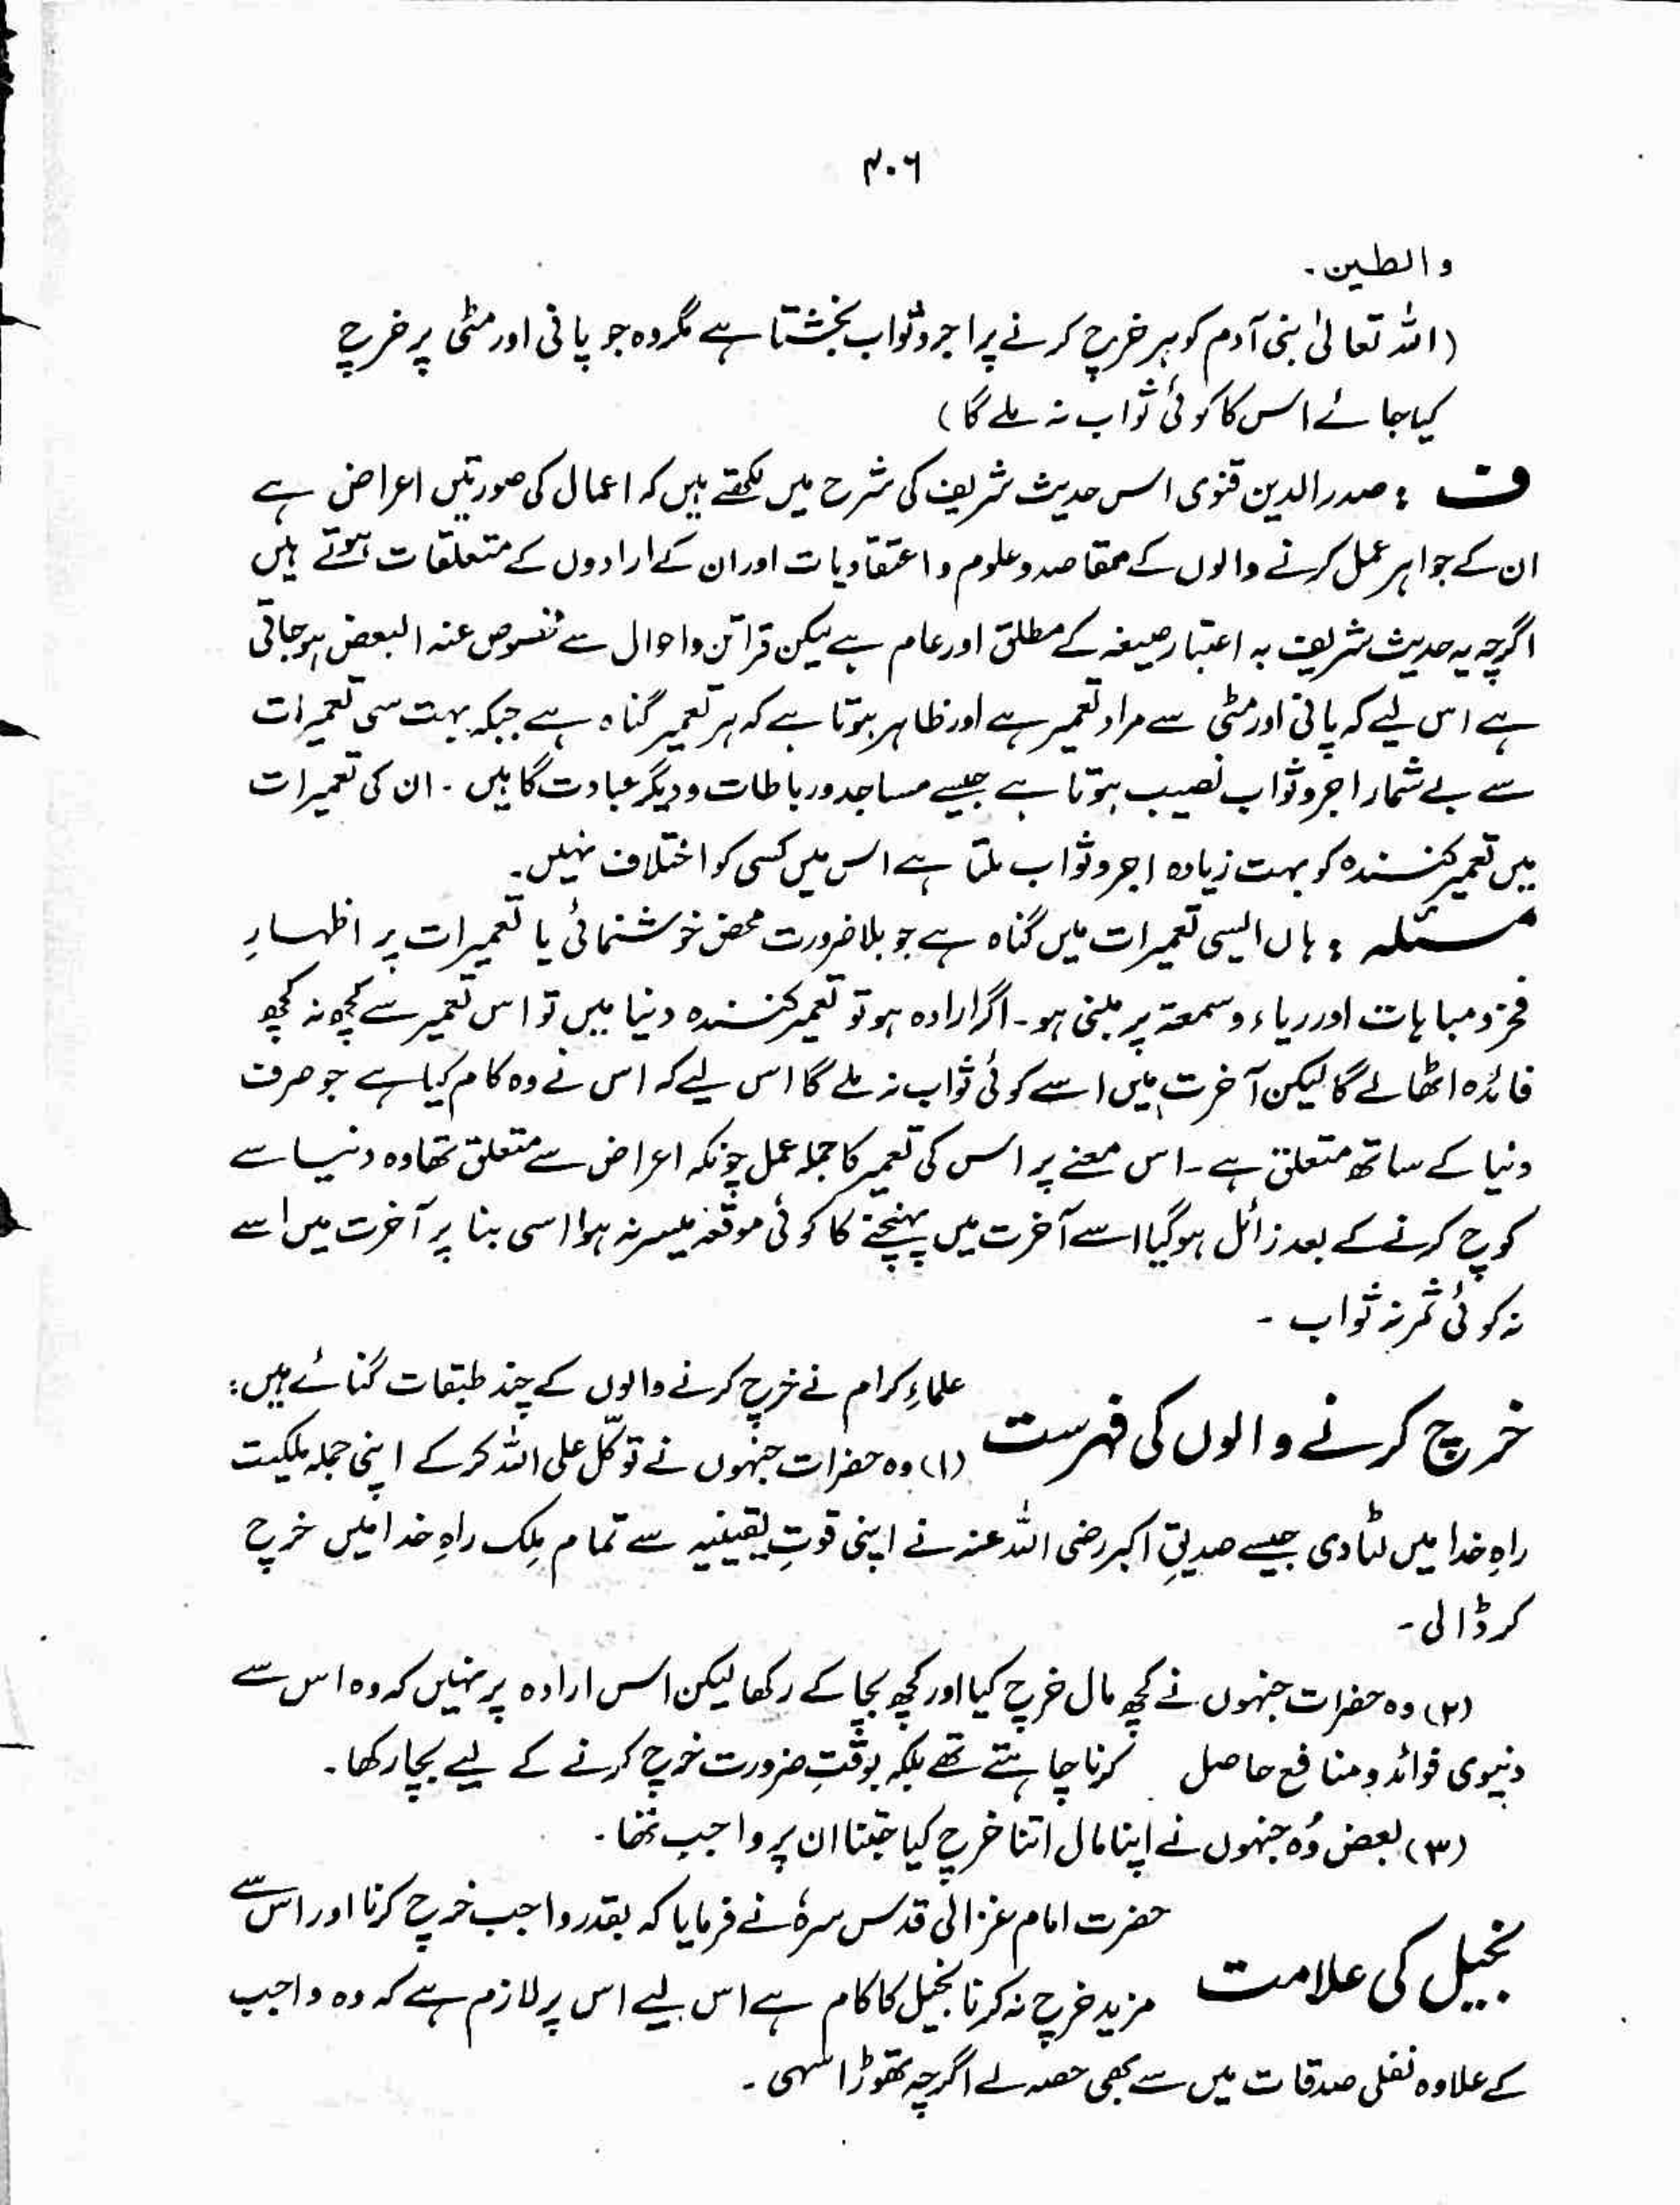 ۴۰۶
والطین۔
(اللہ تعالیٰ بنی آدم کو ہر خرچ کرنے پر اجر و ثواب بخشتا ہے مگر وہ جو پانی اور مٹی پر خرچ
کیا جائے اس کا کوئی ثواب نہ ملے گا)
ف : صدر الدین قنوی اس حدیث شریف کی شرح میں لکھتے ہیں کہ اعمال کی صورتیں اعراض ہے
ان کے جواہر عمل کرنے والوں کے مقاصد و علوم و اعتقادیات اور ان کے ارادوں کے متعلقات ہوتے ہیں
اگرچہ یہ حدیث شریف بہ اعتبار صیغہ کے مطلق اور عام ہے لیکن قرائن و احوال سے عنہ البعض ہو جاتی
ہے اس لیے کہ پانی اور مٹی سے مراد تعمیر ہے اور ظاہر ہوتا ہے کہ ہر تعمیر گناہ ہے جبکہ بہت سی تعمیرات
سے بے شمار اجر و ثواب نصیب ہوتا ہے جیسے مساجد ورباطات و دیگر عبادت گاہیں۔ ان کی تعمیرات
میں تعمیر کنندہ کو بہت زیادہ اجر و ثواب ملتا ہے اس میں کسی کو اختلاف نہیں۔
مسئلہ : ہاں ایسی تعمیرات میں گناہ ہے جو بلا ضرورت محض خوشنمائی یا تعمیرات پر اظہارِ
فخر و مباہات اور ریاء و سمعۃ پر مبنی ہو۔ اگر ارادہ ہو تو تعمیر کنندہ دنیا میں تو اس تعمیر سے کچھ نہ کچھ
فائدہ اٹھا لے گا لیکن آخرت میں اسے کوئی ثواب نہ ملے گا اس لیے کہ اس نے وہ کام کیا ہے جو صرف
دنیا کے ساتھ متعلق ہے۔ اس معنے پر اس کی تعمیر کا جملہ عمل چونکہ اعراض سے متعلق تھا وہ دنیا سے
کوچ کرنے کے بعد زائل ہو گیا اسے آخرت میں پہنچنے کا کوئی موقعہ میسر نہ ہوا اسی بنا پر آخرت میں اسے
نہ کوئی ثمر نہ ثواب ۔
خرچ کرنے والوں کی فہرست علماءِ کرام نے خرچ کرنے والوں کے چند طبقات گنائے ہیں:
(۱) وہ حضرات جنہوں نے توکّل علی اللہ کر کے اپنی جملہ ملکیت
راہِ خدا میں لٹا دی جیسے صدیقِ اکبر رضی اللہ عنہ نے اپنی قوتِ یقینیہ سے تمام مِلک راہِ خدا میں خرچ
کر ڈالی۔
(۲) وہ حضرات جنہوں نے کچھ مال خرچ کیا اور کچھ بچا کے رکھا لیکن اس ارادہ پر نہیں کہ وہ اس سے
دنیوی فوائد و منافع حاصل کرنا چاہتے تھے بلکہ بوقتِ ضرورت خرچ کرنے کے لیے بچا رکھا۔
(۳) بعض وُہ جنہوں نے اپنا مال اتنا خرچ کیا جتنا ان پر واجب تھا۔
بخیل کی علامت حضرت امام غزالی قدس سرہٗ نے فرمایا کہ بقدر واجب خرچ کرنا اور اس سے
مزید خرچ نہ کرنا بخیل کا کام ہے اس لیے اس پر لازم ہے کہ وہ واجب
کے علاوہ نفلی صدقات میں سے بھی حصہ لے اگرچہ تھوڑا سہی۔